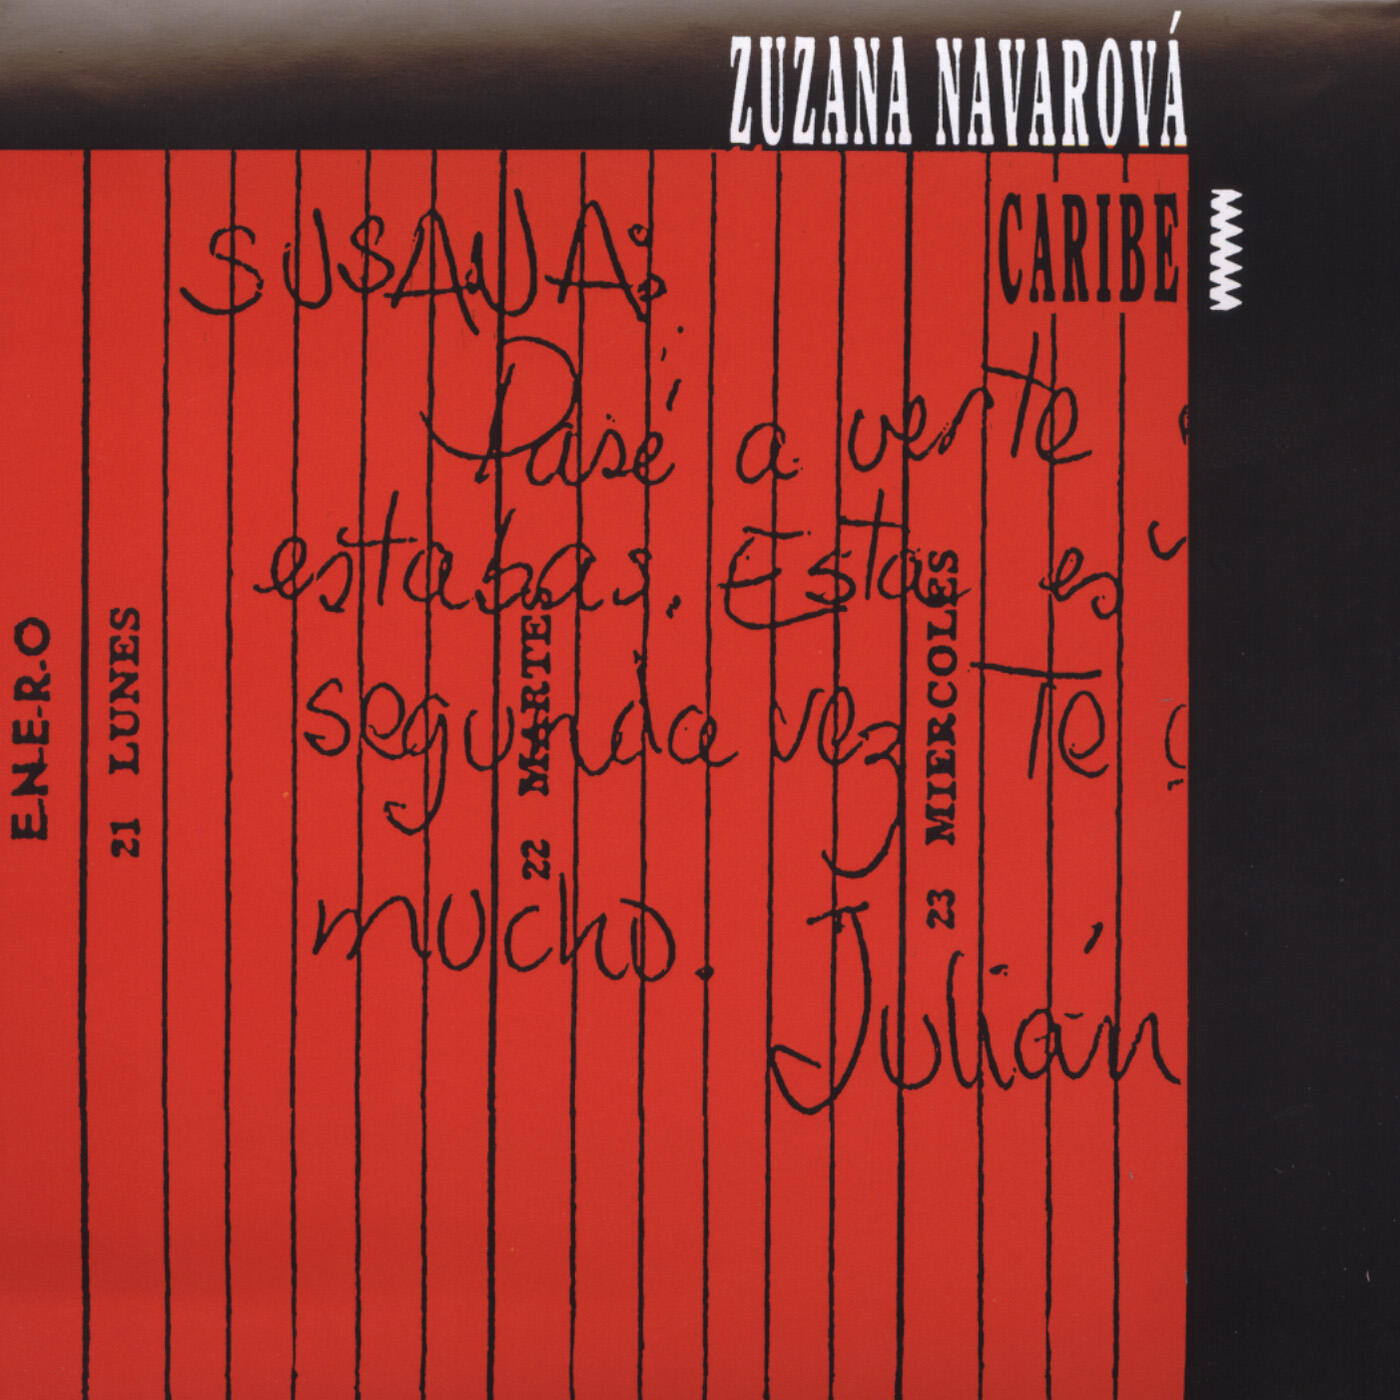 ZUZANA NAVAROVÁ
CARIBE
SUSANA:
Pasé a verte
estabas. Esta es
segunda vez Te
mucho.
Julián
E-N-E-R-O
21 LUNES
22 MARTES
23 MIERCOLES